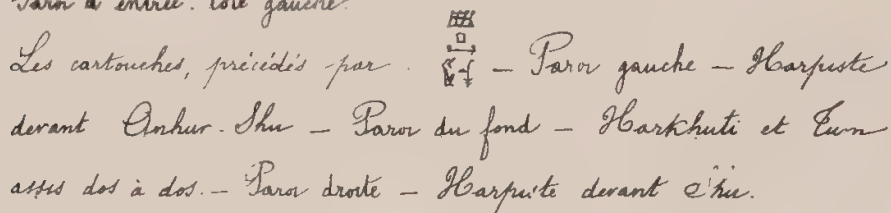 Paroi d'entrée. Coté gauche.
Les cartouches, précédés par. — Paroi gauche — Harpiste
devant Anhur-Shu — Paroi du fond — Harkhuti et Tum
assis dos à dos. — Paroi droite — Harpiste devant Shu.